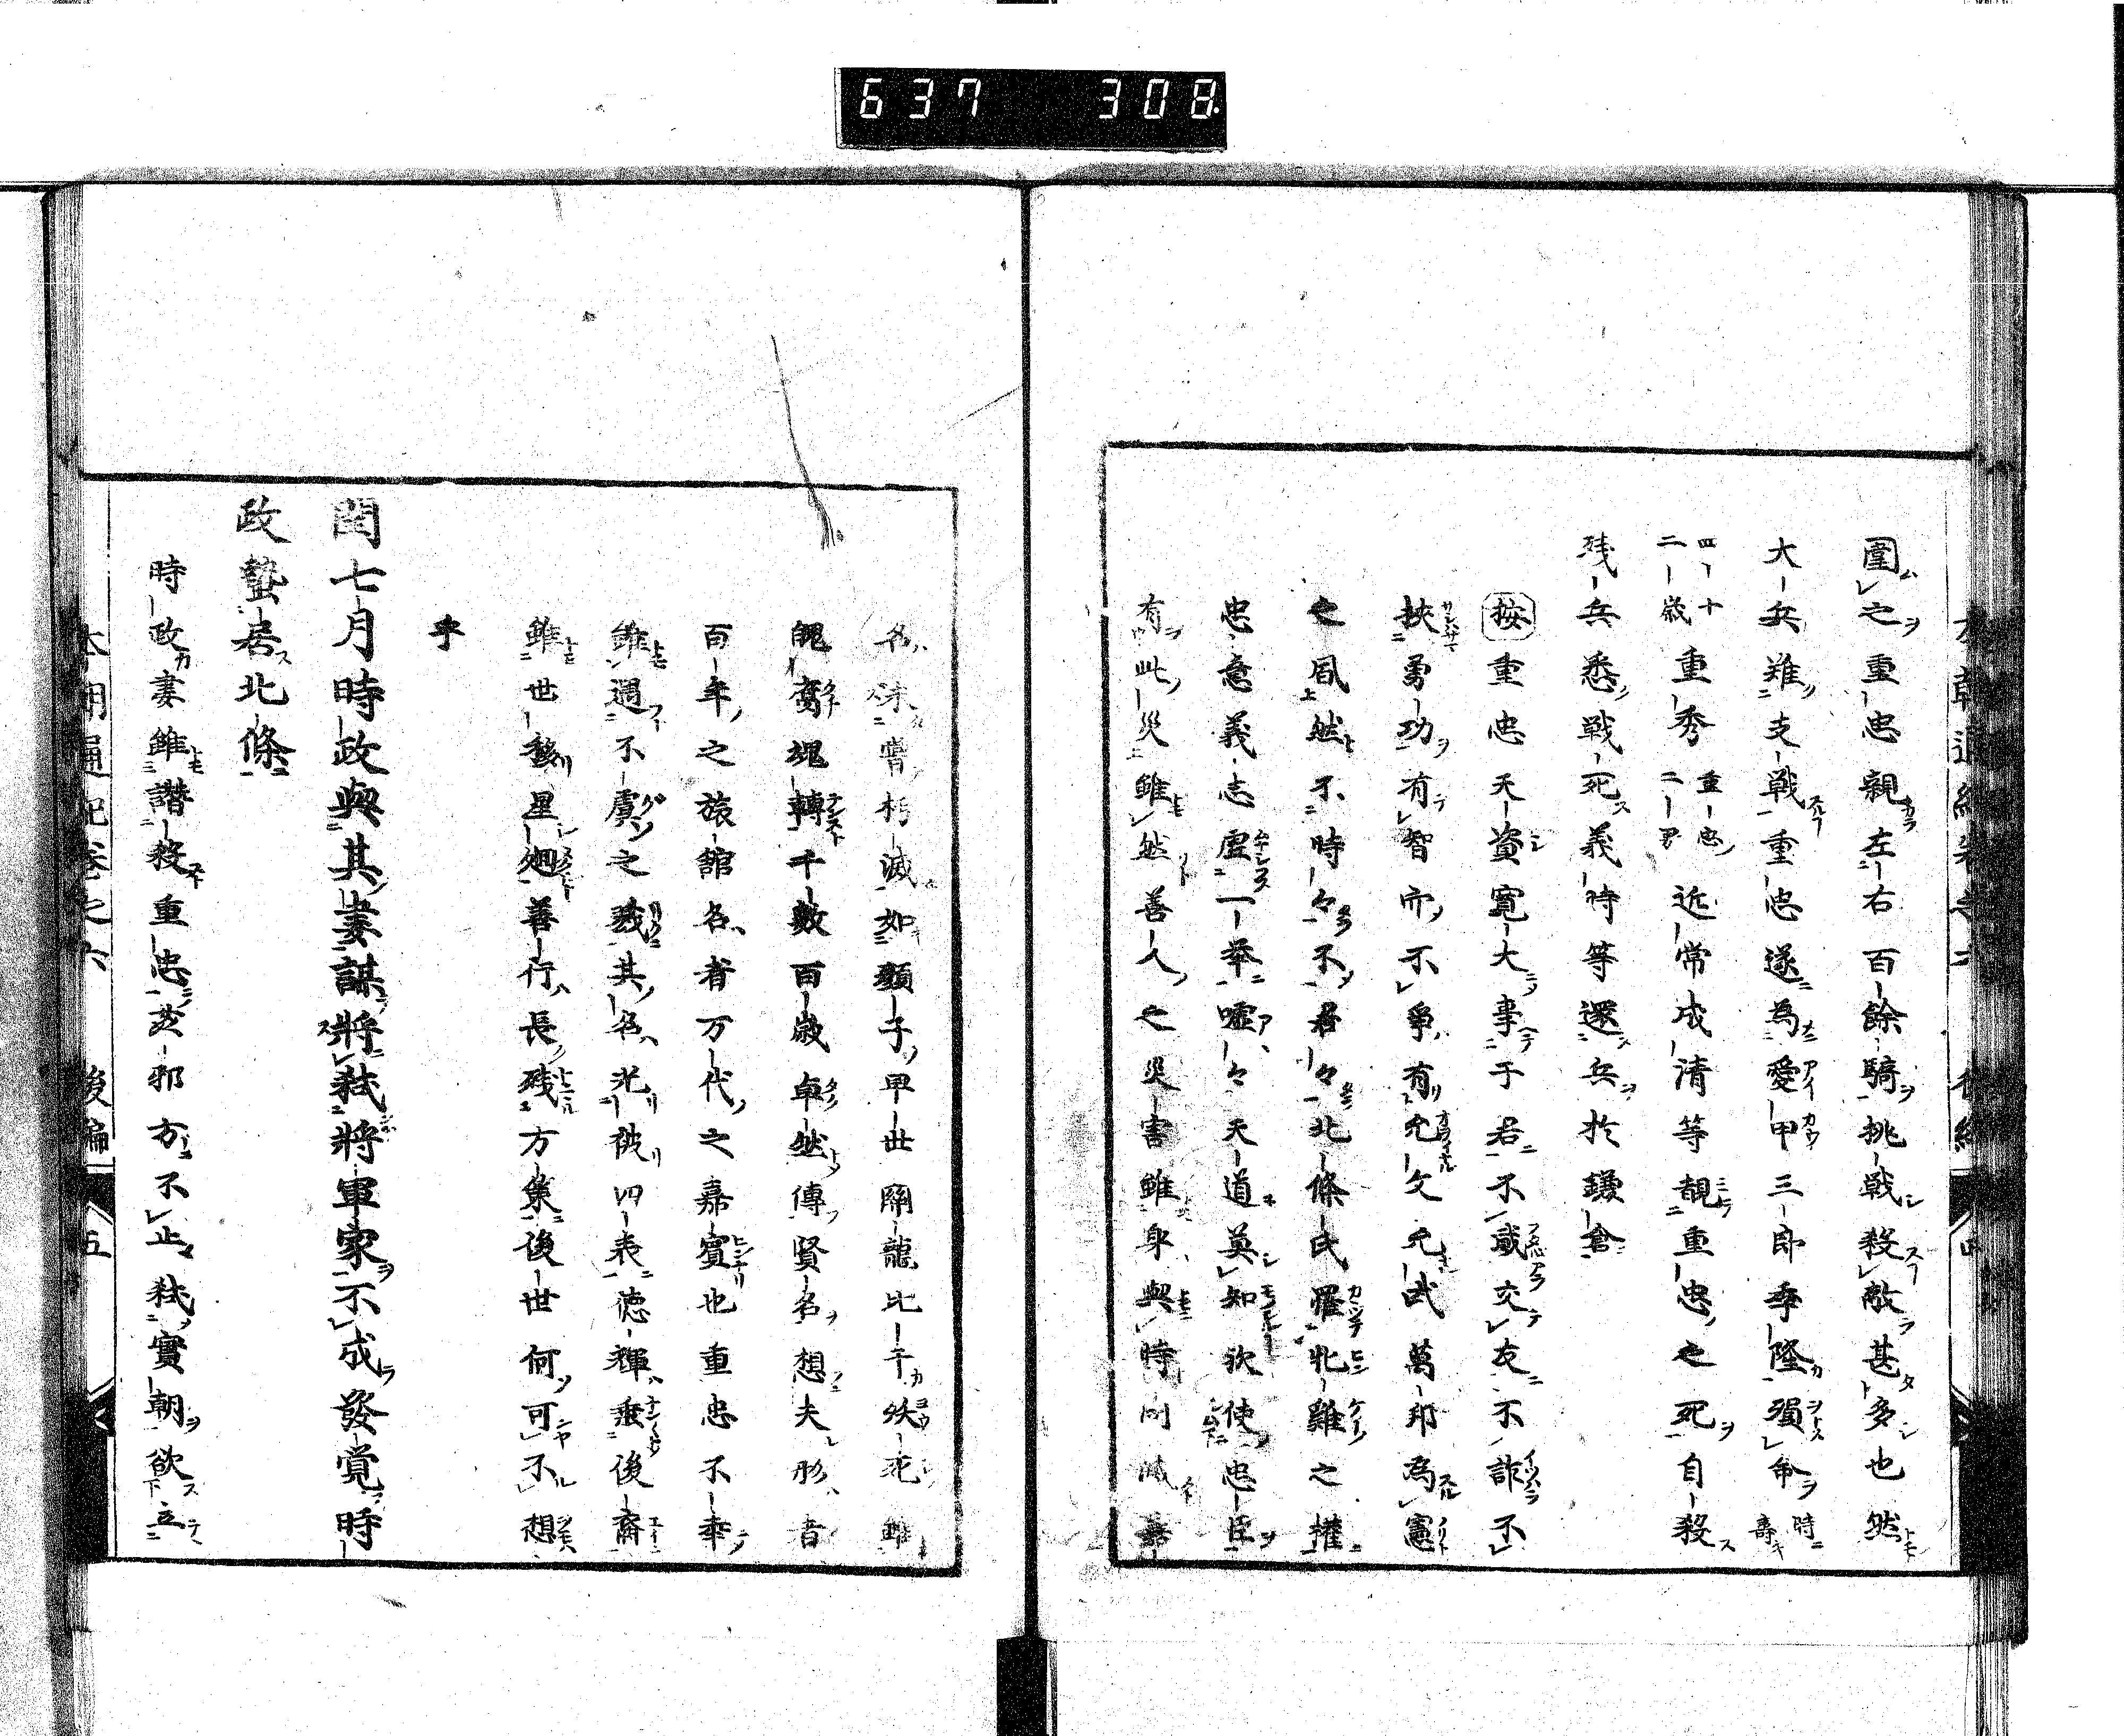 637 308
圍之重忠親左右百餘騎挑戰殺敵甚多也然
大兵難支戰重忠遂為愛甲三郎季隆殞命時壽
四十二歳重秀重忠二男近常成清等覩重忠之死自殺
残兵悉戰死義時等還兵於鎌倉
按重忠天資寛大事于君不蔵交友不詐不
挾勇功有智而不爭有允文允武萬邦為憲
之風然不時々不君々北條氏羅牝雞之權
忠意義志虚一擧嘘々天道莫知欲使忠臣
有此災雖然善人之災害雖身與時同滅
名未嘗朽滅如顔子甲世關龍比干妖死雖
魄変塊轉千數百歳卓然傳賢名想夫形者
百年之旅舘名者万代之嘉賓也重忠不幸
雖遇不虞之烖其名光彼四表徳輝垂後裔
雖世移星廻善行長残方策後世何可不想
乎
閏七月時政與其妻謀將弑將軍家不成發覚時
政蟄居北條
時政妻雖譖殺重忠姦邪方不止弑實朝欲立
本朝通紀巻之六 後編 五